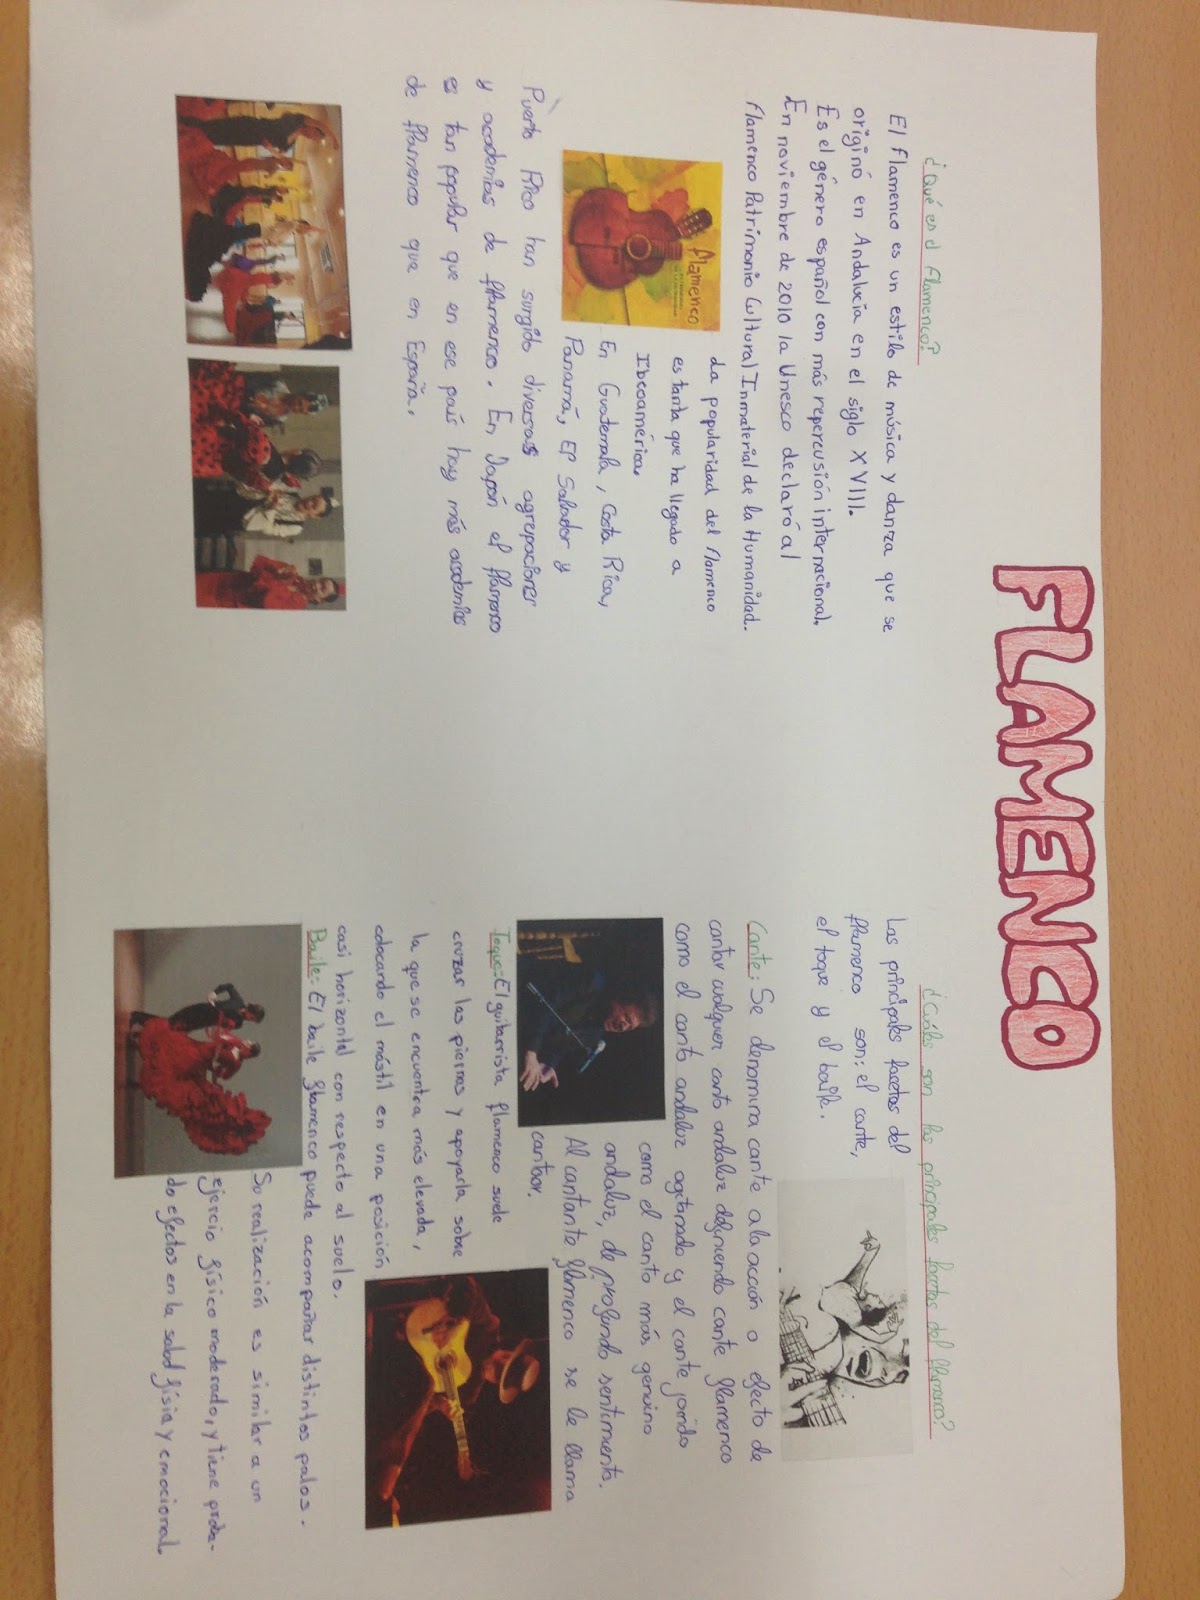 FLAMENCO
¿Qué es el flamenco?
El flamenco es un estilo de música y danza que se
originó en Andalucía en el siglo XVIII.
Es el género español con más repercusión internacional.
En noviembre de 2010 la Unesco declaró al
flamenco Patrimonio Cultural Inmaterial de la Humanidad.
flamenco
La popularidad del flamenco
es tanta que ha llegado a
Iberoamérica.
En Guatemala, Costa Rica,
Panamá, El Salvador y
Puerto Rico han surgido diversas agrupaciones
y academias de flamenco. En Japón el flamenco
es tan popular que en ese país hay más academias
de flamenco que en España.
¿Cuáles son las principales facetas del flamenco?
Las principales facetas del
flamenco son: el cante,
el toque y el baile.
Cante: Se denomina cante a la acción o efecto de
cantar cualquier canto andaluz definiendo cante flamenco
como el canto andaluz agitanado y el cante jondo
como el canto más genuino
andaluz, de profundo sentimiento.
Al cantante flamenco se le llama
cantaor.
Toque: El guitarrista flamenco suele
cruzar las piernas y apoyarla sobre
la que se encuentra más elevada,
colocando el mástil en una posición
casi horizontal con respecto al suelo.
Baile: El baile flamenco puede acompañar distintos palos.
Su realización es similar a un
ejercicio físico moderado, y tiene proba-
do efectos en la salud físia y emocional.